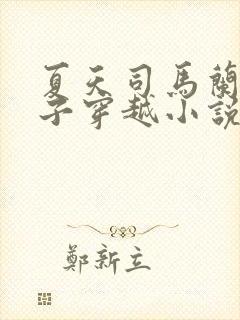 夏天司馬蘭
子穿越小說
鄭新立